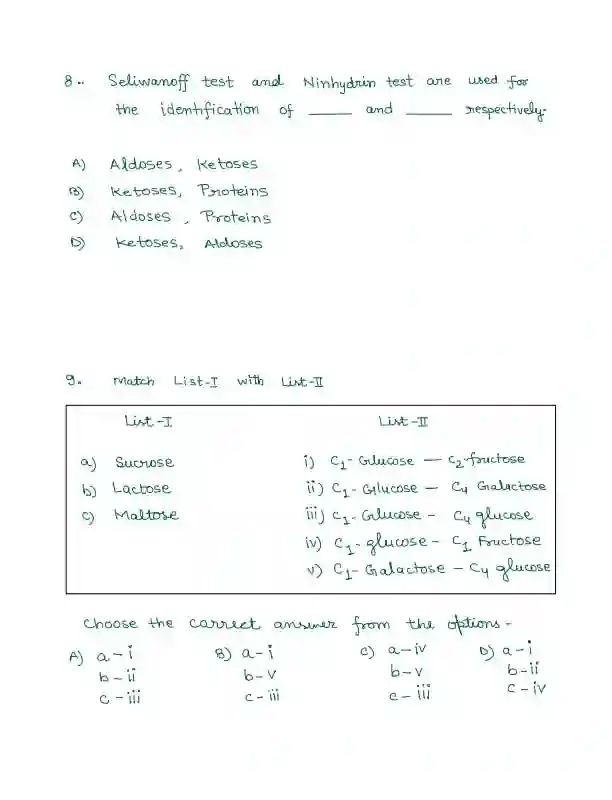 8.. Seliwanoff test and Ninhydrin test are used for
the identification of _____ and _____ respectively.
A) Aldoses, Ketoses
B) Ketoses, Proteins
C) Aldoses, Proteins
D) Ketoses, Aldoses
9. Match List-I with List-II
List-I List-II
a) Sucrose i) C₁- Glucose — C₂-fructose
b) Lactose ii) C₁- Glucose — C₄ Galactose
c) Maltose iii) C₁- Glucose - C₄ glucose
iv) C₁- glucose - C₁ Fructose
v) C₁- Galactose - C₄ glucose
Choose the correct answer from the options -
A) a-i B) a-i C) a-iv D) a-i
b-ii b-v b-v b-ii
c-iii c-iii c-iii c-iv